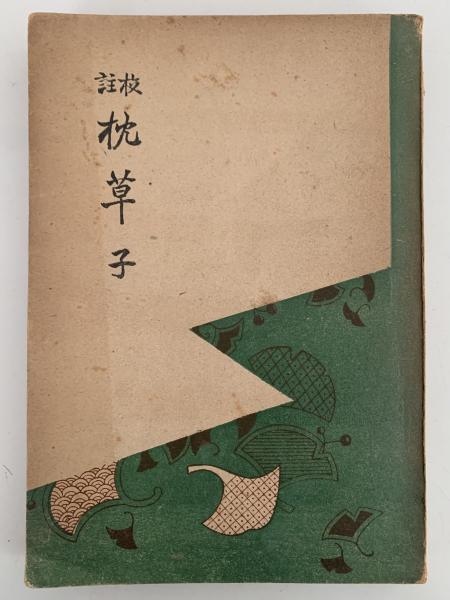 校註
枕草子